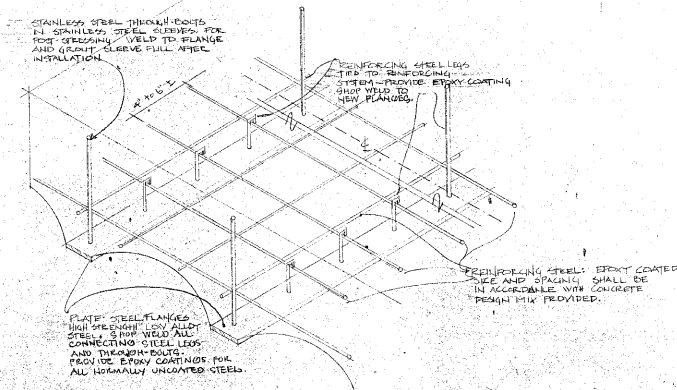 STAINLESS STEEL THROUGH-BOLTS
IN STAINLESS STEEL SLEEVES. FOR
POST-STRESSING WELD TO FLANGE
AND GROUT SLEEVE FULL AFTER
INSTALLATION
REINFORCING STEEL LEGS
TIED TO REINFORCING
SYSTEM - PROVIDE EPOXY COATING
SHOP WELD TO
NEW FLANGES.
4' TO 6' ±
REINFORCING STEEL: EPOXY COATED
SIZE AND SPACING SHALL BE
IN ACCORDANCE WITH CONCRETE
DESIGN MIX PROVIDED.
PLATE: STEEL FLANGES
HIGH STRENGTH LOW ALLOY
STEEL. SHOP WELD ALL
CONNECTING STEEL LEGS
AND THROUGH-BOLTS.
PROVIDE EPOXY COATINGS FOR
ALL NORMALLY UNCOATED STEEL.